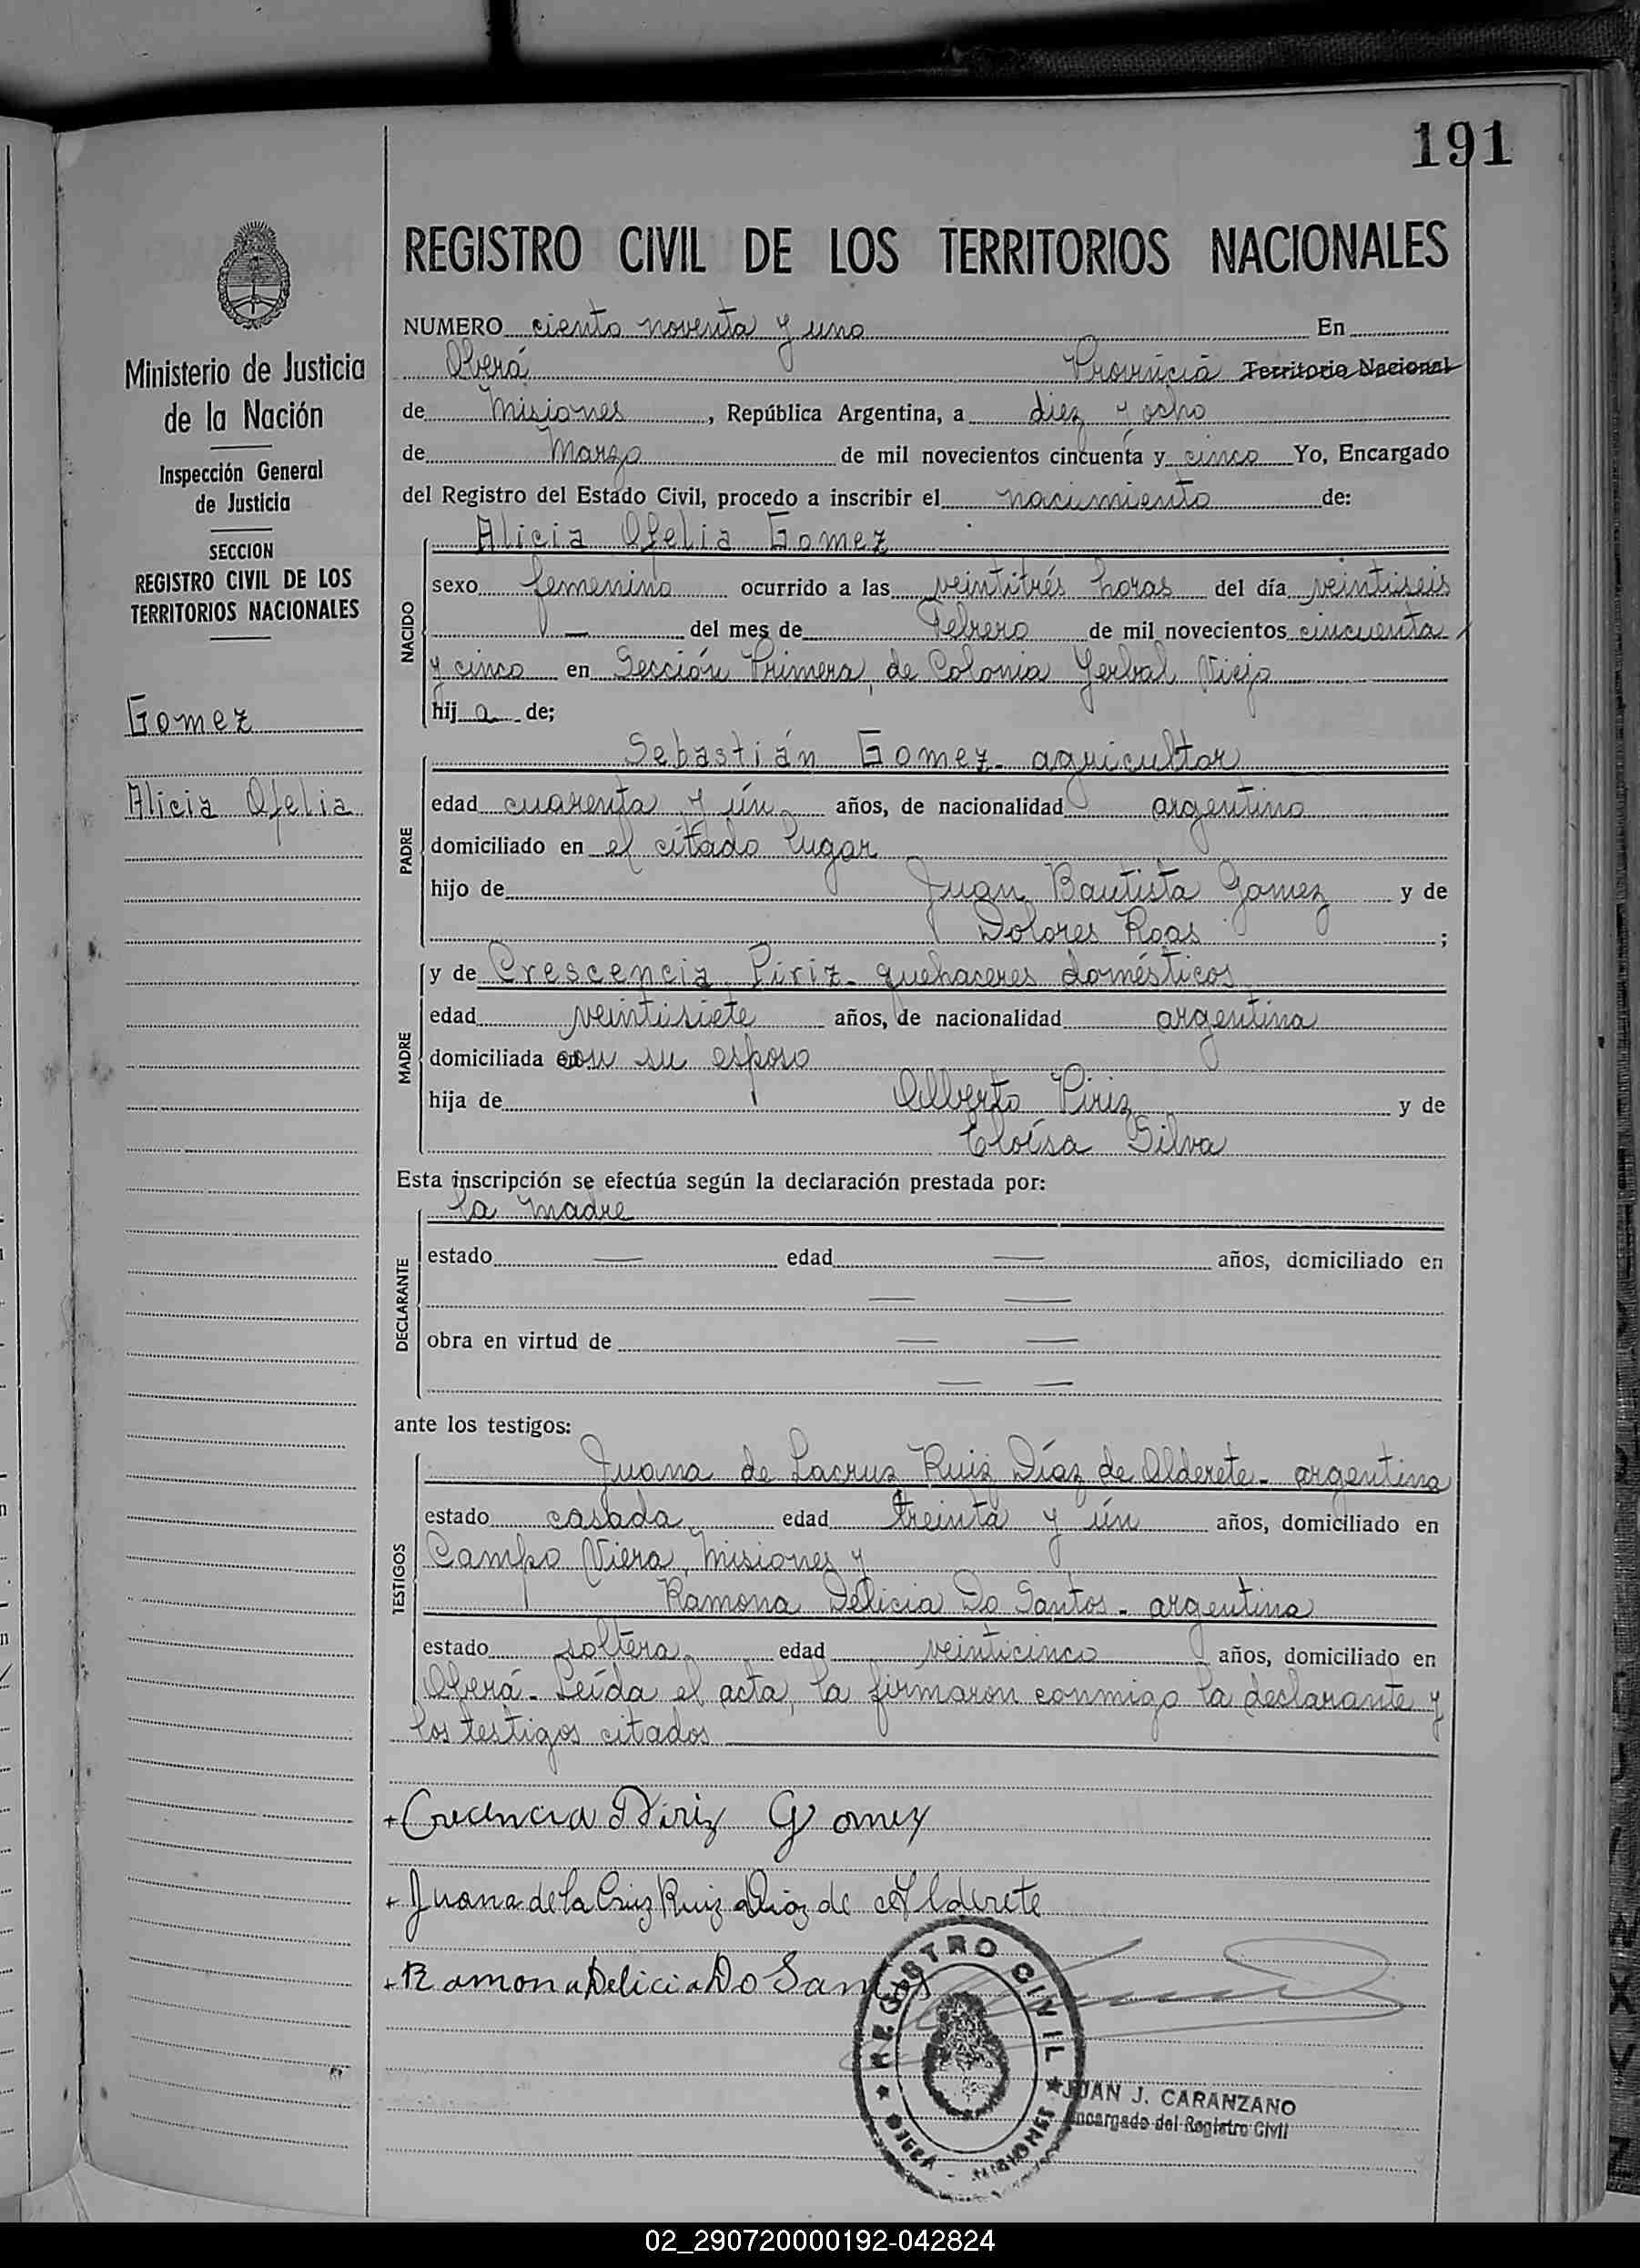 191
REGISTRO CIVIL DE LOS TERRITORIOS NACIONALES
Ministerio de Justicia
de la Nación
Inspección General
de Justicia
SECCION
REGISTRO CIVIL DE LOS
TERRITORIOS NACIONALES
Gomez
Alicia Ofelia
NUMERO ciento noventa y uno En
Oberá Provincia Territorio Nacional
de Misiones, República Argentina, a diez y ocho
de Marzo de mil novecientos cincuenta y cinco Yo, Encargado
del Registro del Estado Civil, procedo a inscribir el nacimiento de:
Alicia Ofelia Gomez
NACIDO
sexo femenino ocurrido a las veintitrés horas del día veintiseis
— del mes de Febrero de mil novecientos cincuenta
y cinco en Sección Primera, de Colonia Yerbal Viejo
hij a de;
Sebastián Gomez - agricultor
PADRE
edad cuarenta y ún años, de nacionalidad argentino
domiciliado en el citado lugar
hijo de Juan Bautista Gomez y de
Dolores Roas ;
y de Crescencia Piriz - quehaceres domésticos
MADRE
edad veintisiete años, de nacionalidad argentina
domiciliada con su esposo
hija de Alberto Piriz y de
Eloísa Silva
Esta inscripción se efectúa según la declaración prestada por:
la madre
DECLARANTE
estado — edad — años, domiciliado en
— —
obra en virtud de — —
— —
ante los testigos:
Juana de Lacruz Ruiz Díaz de Alderete - argentina
TESTIGOS
estado casada edad treinta y ún años, domiciliado en
Campo Viera, Misiones y
Ramona Delicia Do Santos - argentina
estado soltera edad veinticinco años, domiciliado en
Oberá - Leída el acta, la firmaron conmigo la declarante y
los testigos citados
+ Crecencia Piriz Gomez
+ Juana de la Cruz Ruiz Diaz de Alderete
+ Ramona Delicia Do Santos
REGISTRO CIVIL
OBERÁ - MISIONES
JUAN J. CARANZANO
Encargado del Registro Civil
02_290720000192-042824